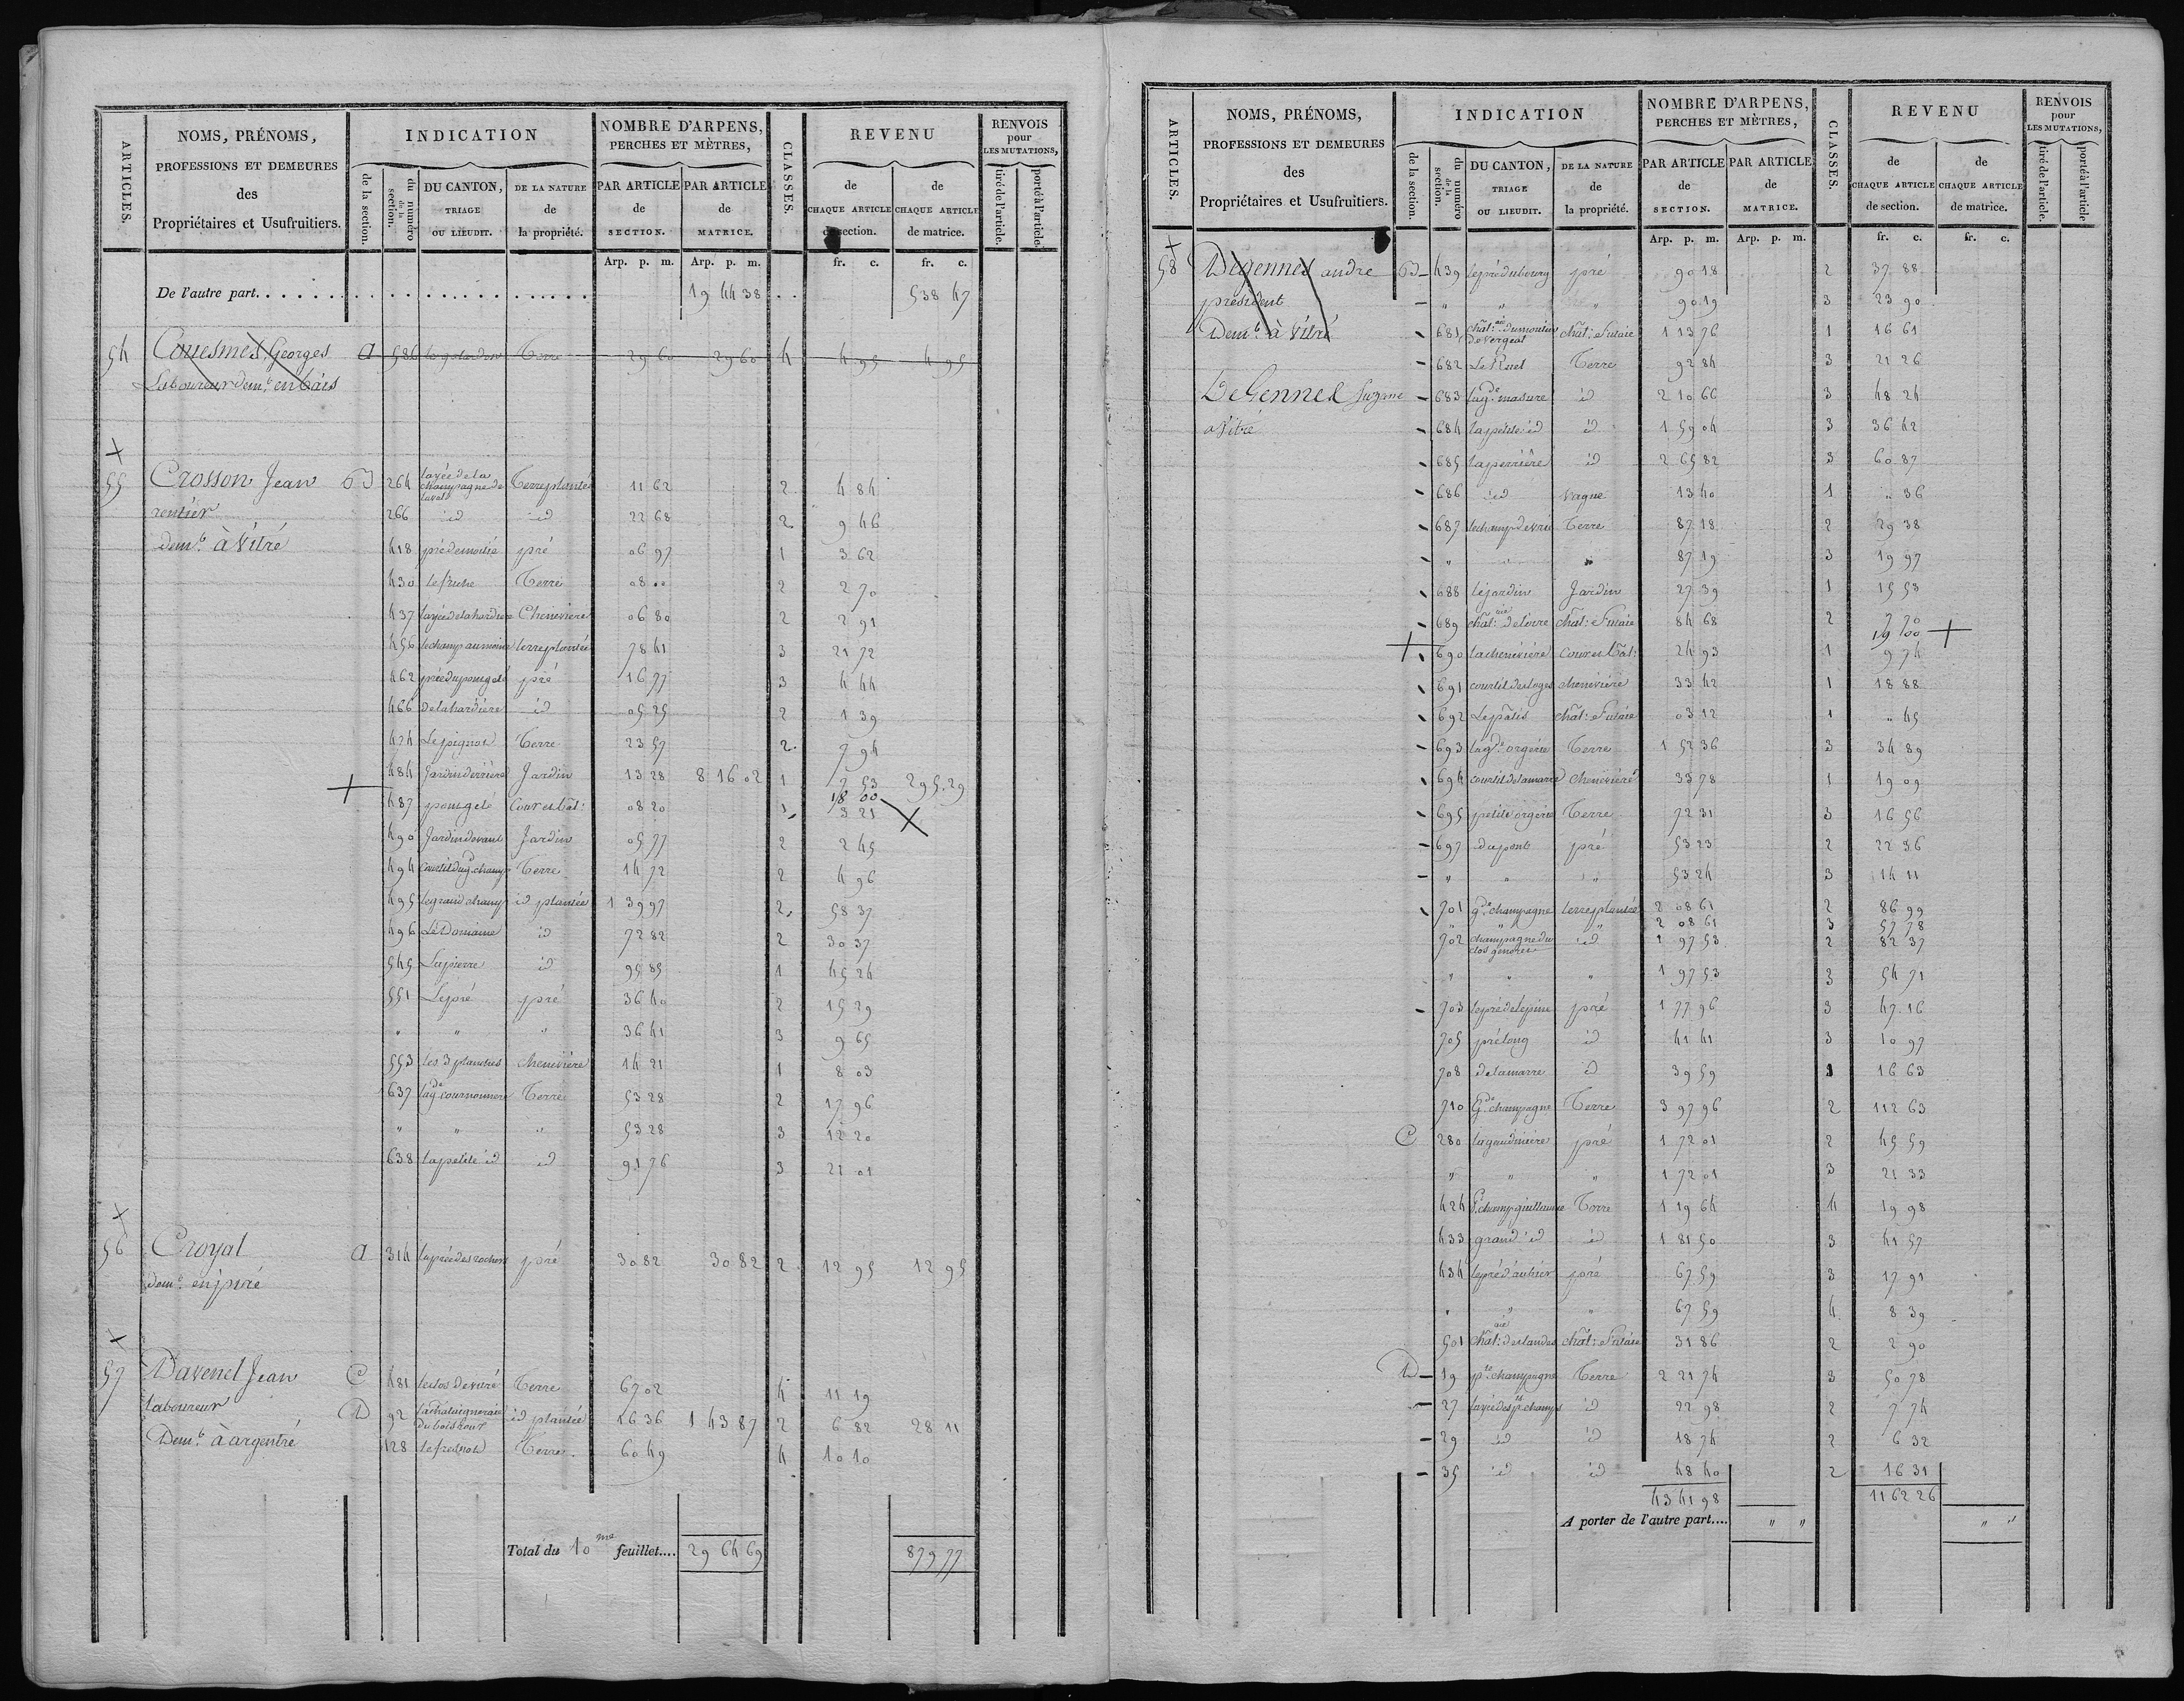 ARTICLES.
NOMS, PRÉNOMS,
PROFESSIONS ET DEMEURES
des
Propriétaires et Usufruitiers.
INDICATION
de la section.
du numéro de la section.
DU CANTON, TRIAGE OU LIEUDIT.
DE LA NATURE de la propriété.
NOMBRE D'ARPENS, PERCHES ET MÈTRES,
PAR ARTICLE de SECTION.
PAR ARTICLE de MATRICE.
CLASSES.
REVENU
de CHAQUE ARTICLE de section.
de CHAQUE ARTICLE de matrice.
RENVOIS pour LES MUTATIONS,
tiré de l'article.
porté à l'article.
Arp. p. m. Arp. p. m. fr. c. fr. c.
De l'autre part. 19 44 38 538 47
54 Couesmes Georges a 586 Terre 29 60 29 60 4 4 95 4 95
Laboureur demt. en bais
+
55 Crosson Jean B 264 layée de la champagne de laval Terre plantée 11 62 2 4 84
rentier 266 id id 22 68 2 9 46
demt. à Vitré 418 pré pré 06 97 1 3 62
430 Terre 08 00 2 2 70
437 layée de la hardiere Cheneviere 06 80 2 2 91
456 le champ au moine terre plantée 78 41 3 21 72
462 pré du pougelé pré 16 77 3 4 44
466 de la hardiere id 05 25 2 1 39
474 Le pignol Terre 23 57 2 7 94
484 Jardin derriere Jardin 13 28 8 16 02 1 7 53 295.29
+ 487 pougelé Cour et bât: 08 20 1 18 00 3 21 ×
490 Jardin devant Jardin 05 77 2 2 45
494 Courtil du gd. champ Terre 14 72 2 4 96
495 le grand champ id plantée 1 39 97 2 58 37
496 Le Domaine id 72 82 2 30 37
545 La pierre id 95 85 1 45 24
551 Le pré pré 36 40 2 15 29
" " " 36 41 3 9 65
553 les 3 planches cheneviere 14 21 1 8 03
637 la gde. cournouniere Terre 53 28 2 17 96
" " " 53 28 3 12 20
638 la petite id id 91 76 3 21 01
+
56 Croyal a 314 la prée des rochers pré 30 82 30 82 2 12 95 12 95
demt. en piré
+
57 Davenel Jean C 481 le clos de vitré Terre 67 02 4 11 19
laboureur D 92 la chataigneraie du bois id plantée 16 36 1 43 87 2 6 82 28 11
Demt. à argentré 128 Terre 60 49 4 10 10
Total du 10me feuillet.... 29 64 69 879 77
ARTICLES.
NOMS, PRÉNOMS,
PROFESSIONS ET DEMEURES
des
Propriétaires et Usufruitiers.
INDICATION
de la section.
du numéro de la section.
DU CANTON, TRIAGE OU LIEUDIT.
DE LA NATURE de la propriété.
NOMBRE D'ARPENS, PERCHES ET MÈTRES,
PAR ARTICLE de SECTION.
PAR ARTICLE de MATRICE.
CLASSES.
REVENU
de CHAQUE ARTICLE de section.
de CHAQUE ARTICLE de matrice.
RENVOIS pour LES MUTATIONS,
tiré de l'article.
porté à l'article.
Arp. p. m. Arp. p. m. fr. c. fr. c.
+
58 Degennes andre B 439 le pré du bourg pré 90 18 2 37 88
président " " " 90 19 3 23 90
Demt. à Vitré 681 chât:aie du moulin de vergeal chât: Futaie 1 13 76 1 16 61
682 Le Ruel Terre 92 84 3 21 26
DeGennes Suzane 683 la gde. masure id 2 10 66 3 48 24
a Vitré 684 la petite id id 1 59 04 3 36 42
685 la perrière id 2 65 82 3 60 87
686 id vague 13 40 1 " 36
687 Terre 87 18 2 29 38
" " " 87 19 3 19 97
688 le jardin Jardin 27 39 1 15 53
689 chât:aie chât: Futaie 84 68 2 7 70
+ 690 la cheneviere Cour et bât: 24 93 1 19 00 9 74 +
691 courtil des loges cheneviere 33 42 1 18 88
692 Le pâtis chât: Futaie 03 12 1 " 45
693 la gde. orgerie Terre 1 52 36 3 34 89
694 courtil de la marre cheneviere 33 78 1 19 09
695 petite orgerie Terre 72 31 3 16 56
697 du pont pré 53 23 2 22 36
" " " 53 24 3 14 11
701 gde. champagne terre plantée 2 08 61 2 86 99
" " " 2 08 61 3 57 78
702 champagne du clos id 1 97 53 2 82 37
" " " 1 97 53 3 54 71
703 le pré de lepine pré 1 77 96 3 47 16
705 pré long id 41 41 3 10 97
708 de la marre id 39 59 1 16 63
710 Gde. champagne Terre 3 97 96 2 112 63
C 280 la gaudiniere pré 1 72 01 2 45 59
" " " 1 72 01 3 21 33
424 pt. champ guillaume Terre 1 19 64 4 19 98
433 grand id id 1 81 50 3 41 57
434 pré 67 59 3 17 91
" " " 67 59 4 8 39
501 chât:aie des landes chât: Futaie 31 86 2 2 90
D 19 pte. champagne Terre 2 21 74 3 50 78
27 layée des pts. champs id 22 98 2 7 74
29 id id 18 74 2 6 32
35 id id 48 40 2 16 31
43 41 98 1162 26
A porter de l'autre part.... " " " "